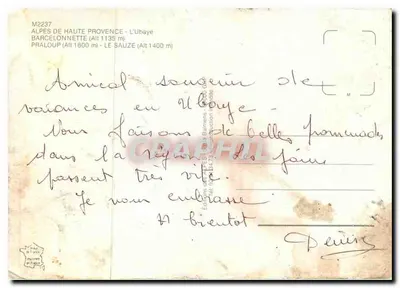 M2237
ALPES DE HAUTE PROVENCE - L'Ubaye
BARCELONNETTE (Alt 1135 m)
PRALOUP (Alt 1600 m) - LE SAUZE (Alt 1400 m)
Amical souvenir de
vacances en Ubaye -
Nous faisons de belles promenades
dans la région, les jours
passent très vite.
Je vous embrasse
A bientot
Denise
CPAPHIL